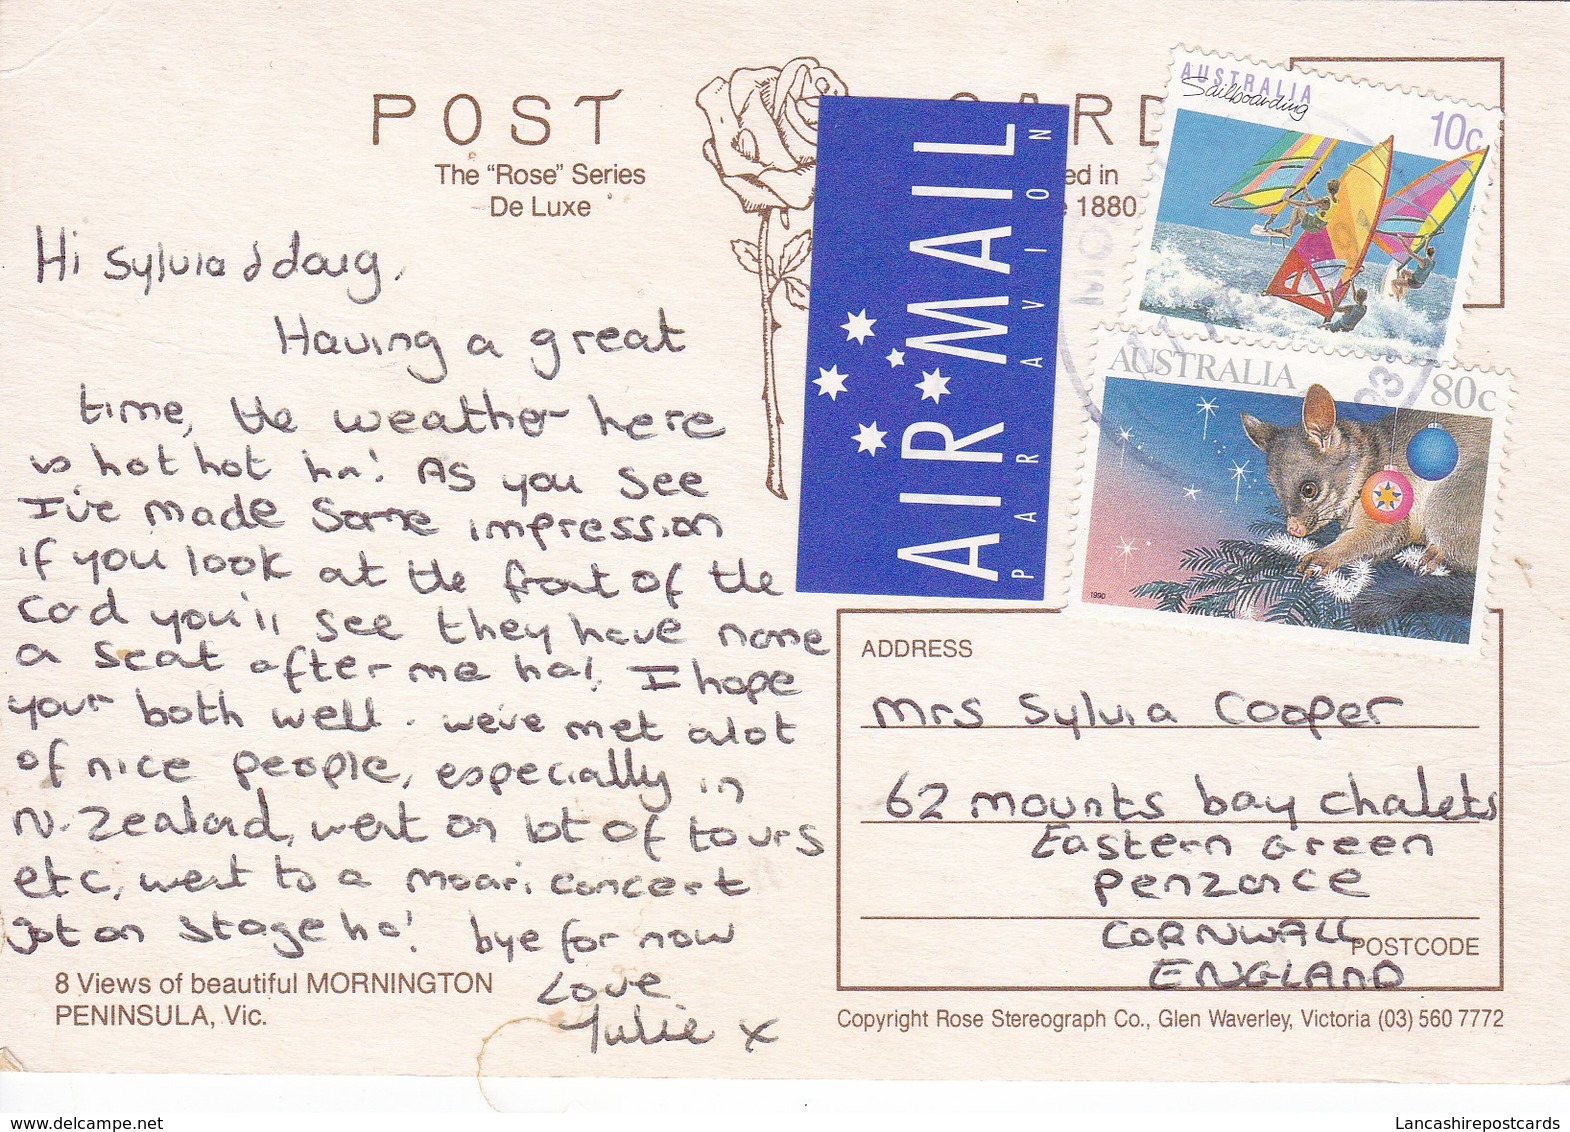 POST CARD
The "Rose" Series
De Luxe
ed in
1880
AIR MAIL
PAR AVION
AUSTRALIA
Sailboarding
10c
AUSTRALIA
80c
1990
Hi Sylvia & doug,
Having a great
time, the weather here
is hot hot ha! As you see
I've made some impression
if you look at the front of the
card you'll see they have name
a seat after me ha! I hope
your both well. we've met alot
of nice people, especially in
N. Zealand, went on lot of tours
etc, went to a moari concert
got on stage ha! bye for now
Love
Julie x
8 Views of beautiful MORNINGTON
PENINSULA, Vic.
ADDRESS
Mrs Sylvia Cooper
62 mounts bay chalets
Eastern Green
Penzance
CORNWALL
POSTCODE
ENGLAND
Copyright Rose Stereograph Co., Glen Waverley, Victoria (03) 560 7772
www.delcampe.net
Lancashirepostcards